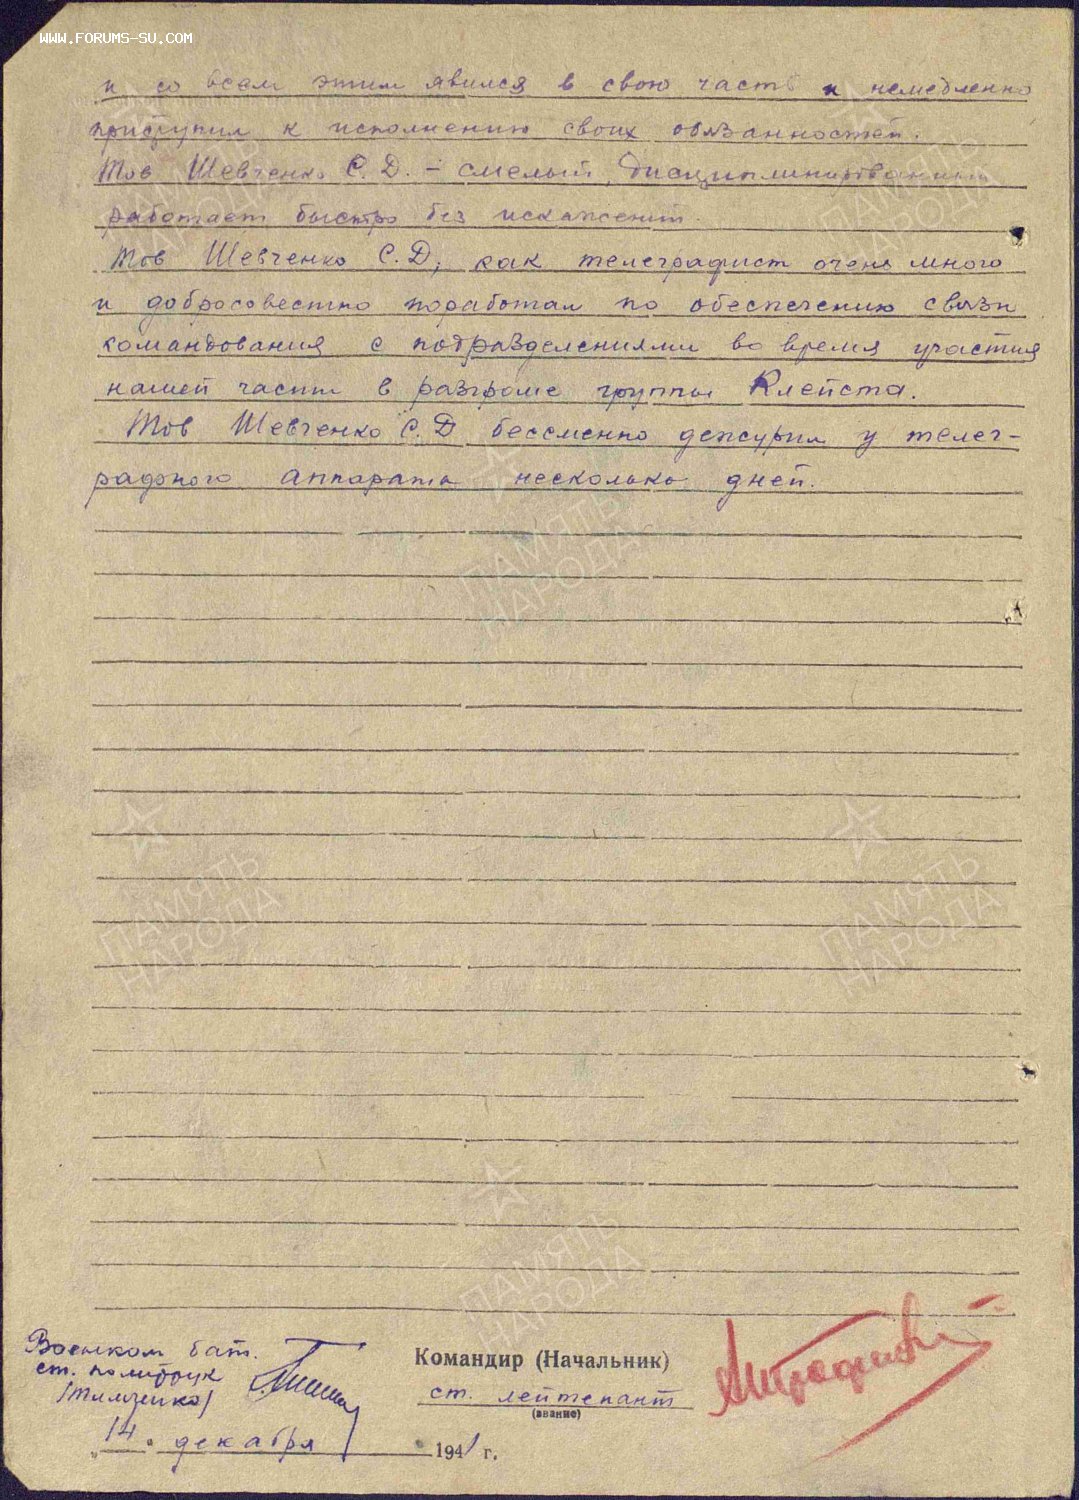 WWW.FORUMS-SU.COM
и со всем этим явился в свою часть и немедленно
приступил к исполнению своих обязанностей.
Тов Шевченко С.Д. - смелый, дисциплинированный
работает быстро без искажений.
Тов Шевченко С.Д, как телеграфист очень много
и добросовестно поработал по обеспечению связи
командования с подразделениями во время участия
нашей части в разгроме группы Клейста.
Тов Шевченко С.Д бессменно дежурил у телег-
рафного аппарата несколько дней.
ПАМЯТЬ
НАРОДА
ПАМЯТЬ
НАРОДА
ПАМЯТЬ
НАРОДА
ПАМЯТЬ
НАРОДА
ПАМЯТЬ
НАРОДА
ПАМЯТЬ
НАРОДА
Военком бат.
ст. политрук
/Тимченко/
Командир (Начальник)
ст. лейтенант
(звание)
„14" декабря 1941 г.